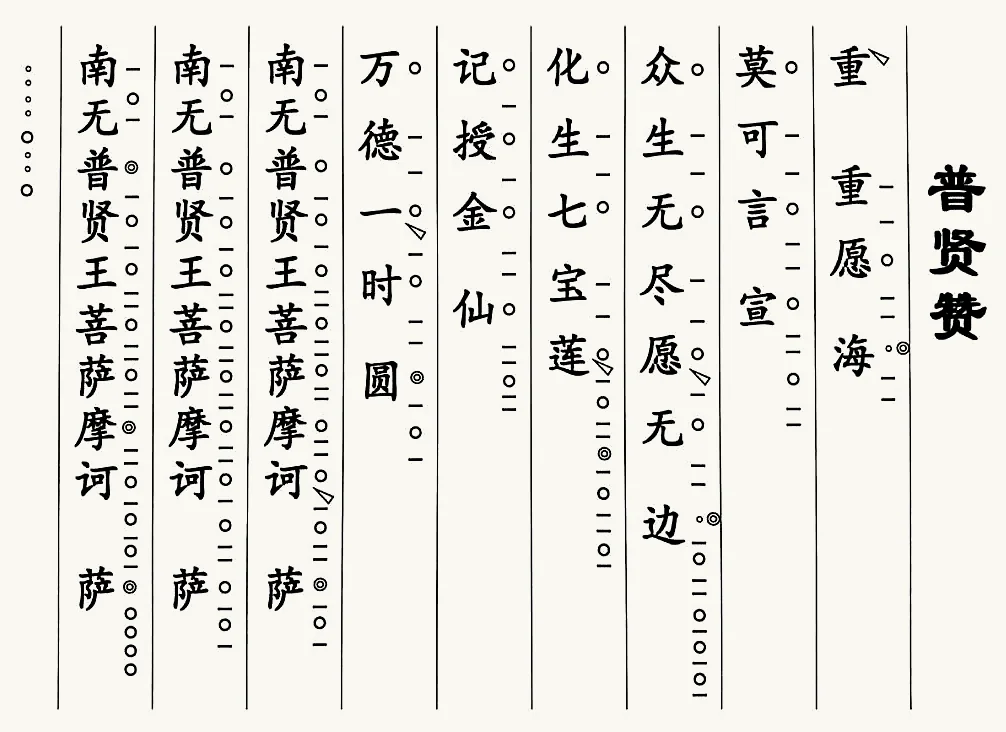 普贤赞
重重愿海
莫可言宣
众生无尽愿无边
化生七宝莲
记授金仙
万德一时圆
南无普贤王菩萨摩诃萨
南无普贤王菩萨摩诃萨
南无普贤王菩萨摩诃萨